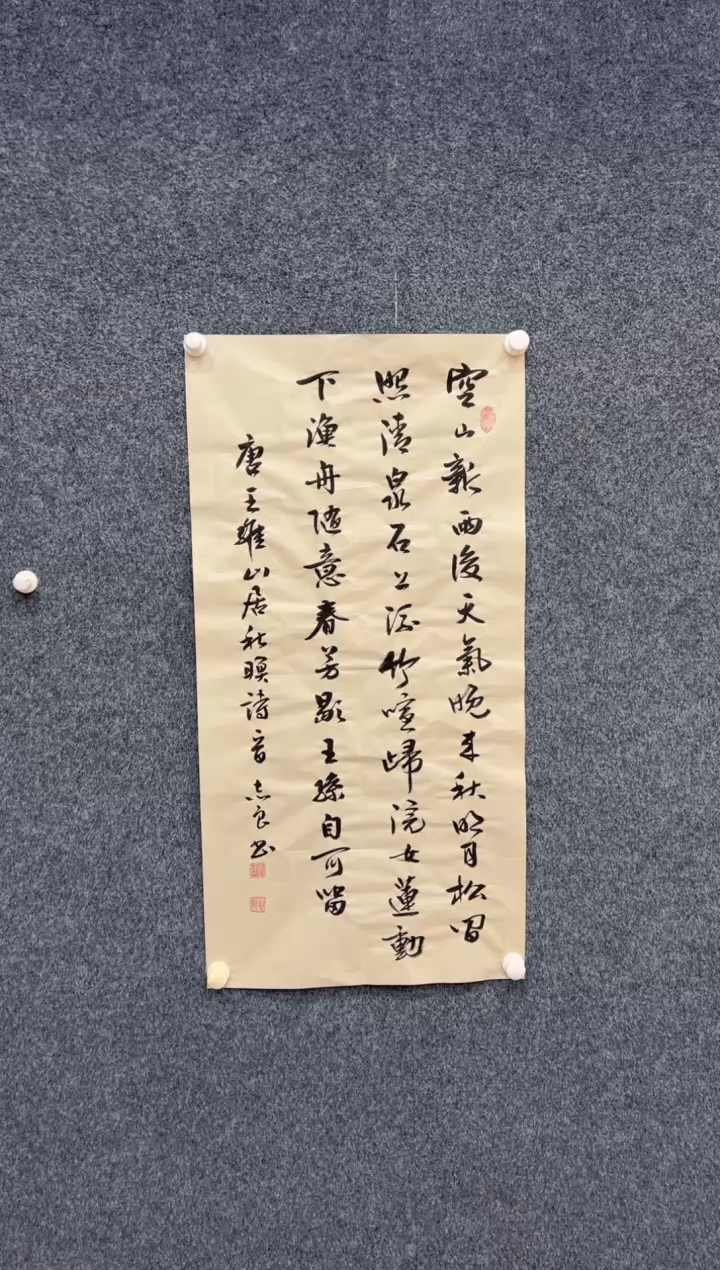 空山新雨後天氣晚來秋明月松间
照清泉石上流竹喧歸浣女蓮動
下漁舟随意春芳歇王孫自可留
唐王維山居秋暝詩一首志良书